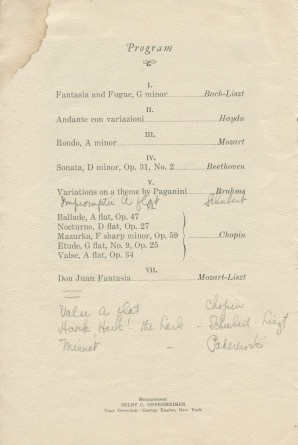 Program
I.
Fantasia and Fugue, G minor Bach-Liszt
II.
Andante con variazioni Haydn
III.
Rondo, A minor Mozart
IV.
Sonata, D minor, Op. 31, No. 2 Beethoven
V.
Variations on a theme by Paganini Brahms
Impromptu A flat Schubert
VI.
Ballade, A flat, Op. 47
Nocturne, D flat, Op. 27
Mazurka, F sharp minor, Op. 59 Chopin
Etude, G flat, No. 9, Op. 25
Valse, A flat, Op. 34
VII.
Don Juan Fantasia Mozart-Liszt
Valse A flat Chopin
Hark Hark! the Lark - Schubert-Liszt
Minuet - Paderewski
Management
SELBY C. OPPENHEIMER
Tour Direction George Engles, New York